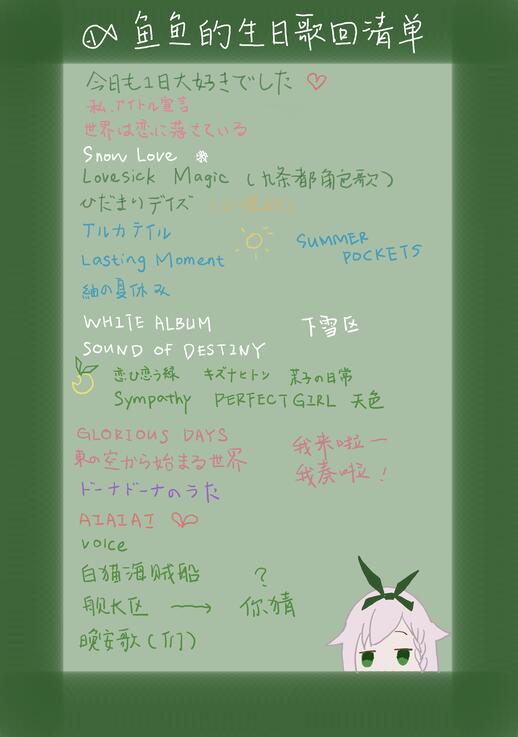 鱼鱼的生日歌回清单
今日も1日大好きでした
私、アイドル宣言
世界は恋に落ちている
Snow Love
Lovesick Magic (九条都角色歌)
ひだまりデイズ
アルカテイル
Lasting Moment
SUMMER
POCKETS
紬の夏休み
WHITE ALBUM
下雪区
SOUND OF DESTINY
恋ひ恋う縁 キズナヒトツ 茉子の日常
Sympathy PERFECT GIRL 天色
GLORIOUS DAYS
東の空から始まる世界
我来啦一
我奏啦!
ドーナドーナのうた
AIAIAI
voice
白猫海贼船
?
舰长区 → 你猜
晚安歌(们)